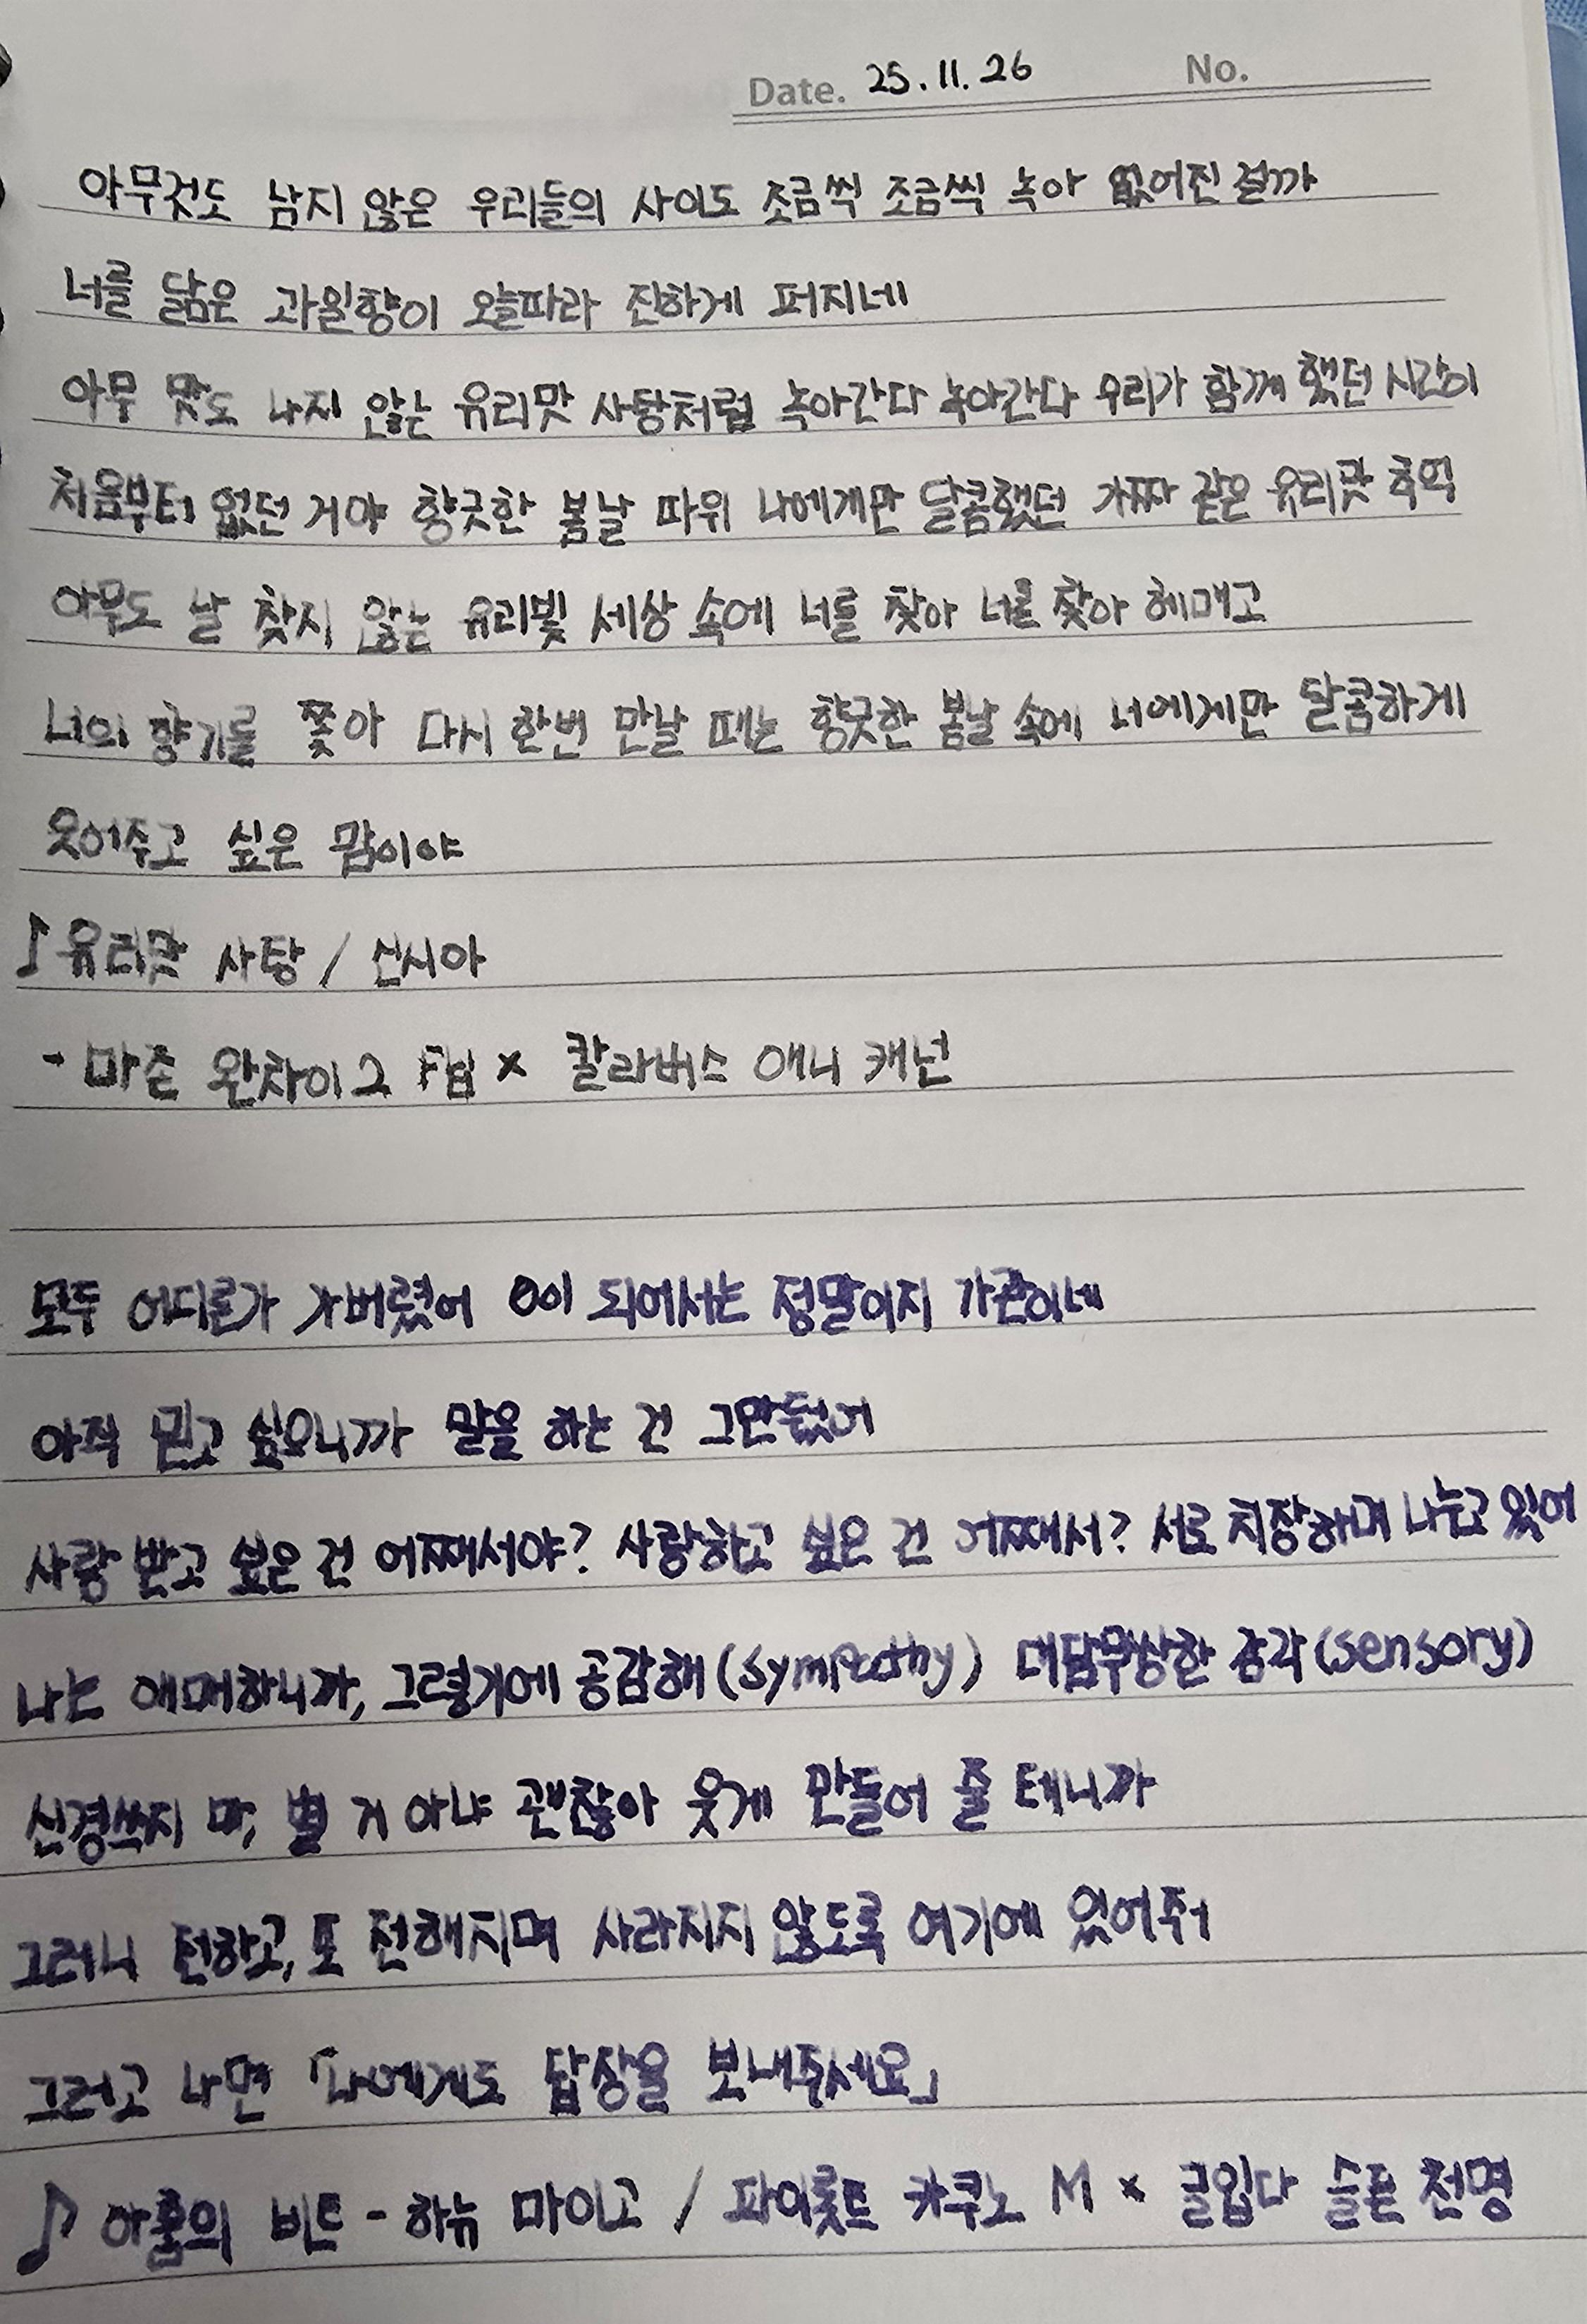 Date. 25.11.26 No.
아무것도 남지 않은 우리들의 사이도 조금씩 조금씩 녹아 없어진 걸까
너를 닮은 과일향이 오늘따라 진하게 퍼지네
아무 맛도 나지 않는 유리맛 사탕처럼 녹아간다 녹아간다 우리가 함께 했던 시간이
처음부터 없던 거야 향긋한 봄날 따위 나에게만 달콤했던 가짜 같은 유리맛 추억
아무도 날 찾지 않는 유리빛 세상 속에 너를 찾아 너를 찾아 헤매고
너의 향기를 쫓아 다시 한번 만날 때는 향긋한 봄날 속에 너에게만 달콤하게
웃어주고 싶은 맘이야
♪ 유리맛 사탕 / 신시아
- 마존 완차이2 F닙 × 칼라버스 애니 캐넌
모두 어디론가 가버렸어 0이 되어서는 정말이지 가관이네
아직 믿고 싶으니까 말을 하는 건 그만뒀어
사랑 받고 싶은 건 어째서야? 사랑하고 싶은 건 어째서? 서로 치장하며 나누고 있어
나는 애매하니까, 그렇기에 공감해(sympathy) 더담무쌍한 감각(sensory)
신경쓰지 마, 별 거 아냐 괜찮아 웃게 만들어 줄 테니까
그러니 전하고, 또 전해지며 사라지지 않도록 여기에 있어줘
그러고 나면 「나에게도 답장을 보내주세요」
♪ 아홀의 비트 - 하뉴 마이고 / 파이롯트 카쿠노 M × 글입다 슬픈 천명